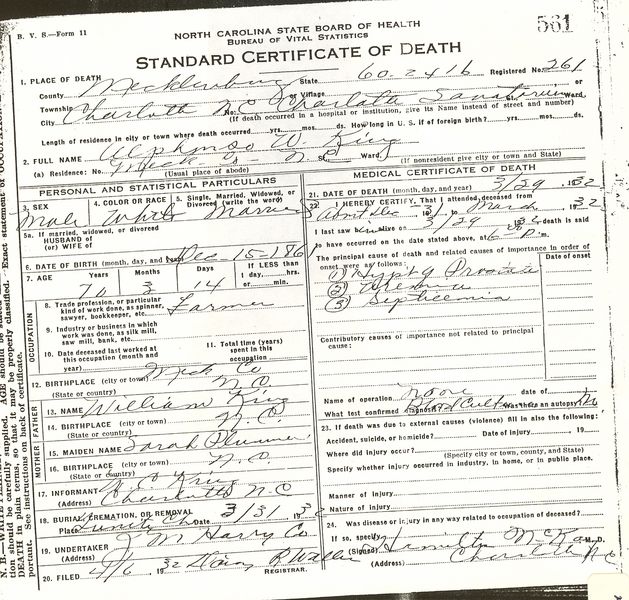 B. V. S.—Form 11
NORTH CAROLINA STATE BOARD OF HEALTH
BUREAU OF VITAL STATISTICS
561
STANDARD CERTIFICATE OF DEATH
1. PLACE OF DEATH
County Mecklenburg State 60-2416 Registered No. 261
Township or Village or
City Charlotte N C No. Charlotte Sanatorium St. Ward.
(If death occurred in a hospital or institution, give its Name instead of street and number)
Length of residence in city or town where death occurred yrs. mos. ds. How long in U. S. if of foreign birth? yrs. mos. ds.
2. FULL NAME Alphonso W. King
(a) Residence: No. Meck - Co - N. C. St. Ward.
(Usual place of abode) (If nonresident give city or town and State)
PERSONAL AND STATISTICAL PARTICULARS
3. SEX 4. COLOR OR RACE 5. Single, Married, Widowed, or Divorced (write the word)
Male White Married
5a. If married, widowed, or divorced
HUSBAND of
(or) WIFE of
6. DATE OF BIRTH (month, day, and year) Dec-15-186
7. AGE Years Months Days If LESS than
1 day, hrs.
or min.
70 3 14
OCCUPATION
8. Trade, profession, or particular
kind of work done, as spinner,
sawyer, bookkeeper, etc. Farmer
9. Industry or business in which
work was done, as silk mill,
saw mill, bank, etc.
10. Date deceased last worked at
this occupation (month and
year)
11. Total time (years)
spent in this
occupation
12. BIRTHPLACE (city or town) Meck Co
(State or country) N. C.
FATHER
13. NAME William King
14. BIRTHPLACE (city or town) N. C
(State or country)
MOTHER
15. MAIDEN NAME Sarah Plummer
16. BIRTHPLACE (city or town) N. C
(State or country)
17. INFORMANT C King
(Address) Charlotte N. C
18. BURIAL, CREMATION, OR REMOVAL
Place Ch. Date 3/31 1932
19. UNDERTAKER J M Harry Co
(Address)
20. FILED 4/6 1932
REGISTRAR.
MEDICAL CERTIFICATE OF DEATH
21. DATE OF DEATH (month, day, and year) 3/29 1932
22. I HEREBY CERTIFY, That I attended deceased from
About Dec 1931 to March 1932
I last saw h alive on 3/29 1932 death is said
to have occurred on the date stated above, at 6 P m.
The principal cause of death and related causes of importance in order of
onset were as follows: Date of onset
(1) Hyptg Prostate
(2) Uremia
(3) Septicemia
Contributory causes of importance not related to principal
cause:
Name of operation none date of
What test confirmed diagnosis? Blood Culture Was there an autopsy? No
23. If death was due to external causes (violence) fill in also the following:
Accident, suicide, or homicide? Date of injury 19
Where did injury occur?
(Specify city or town, county, and State)
Specify whether injury occurred in industry, in home, or in public place.
Manner of injury
Nature of injury
24. Was disease or injury in any way related to occupation of deceased?
If so, specify
(Signed) Hamilton McKay M. D.
(Address) Charlotte N C